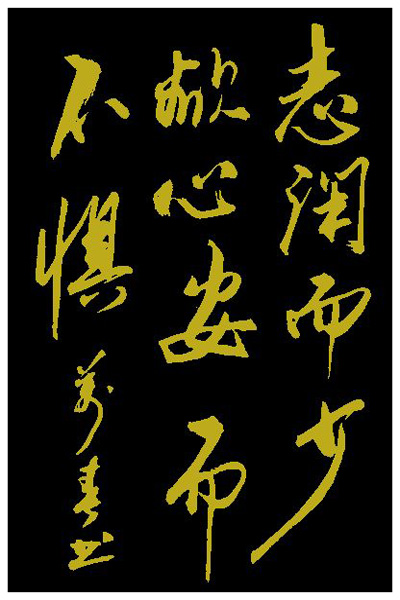 志闲而少
欲心安而
不惧
万春书